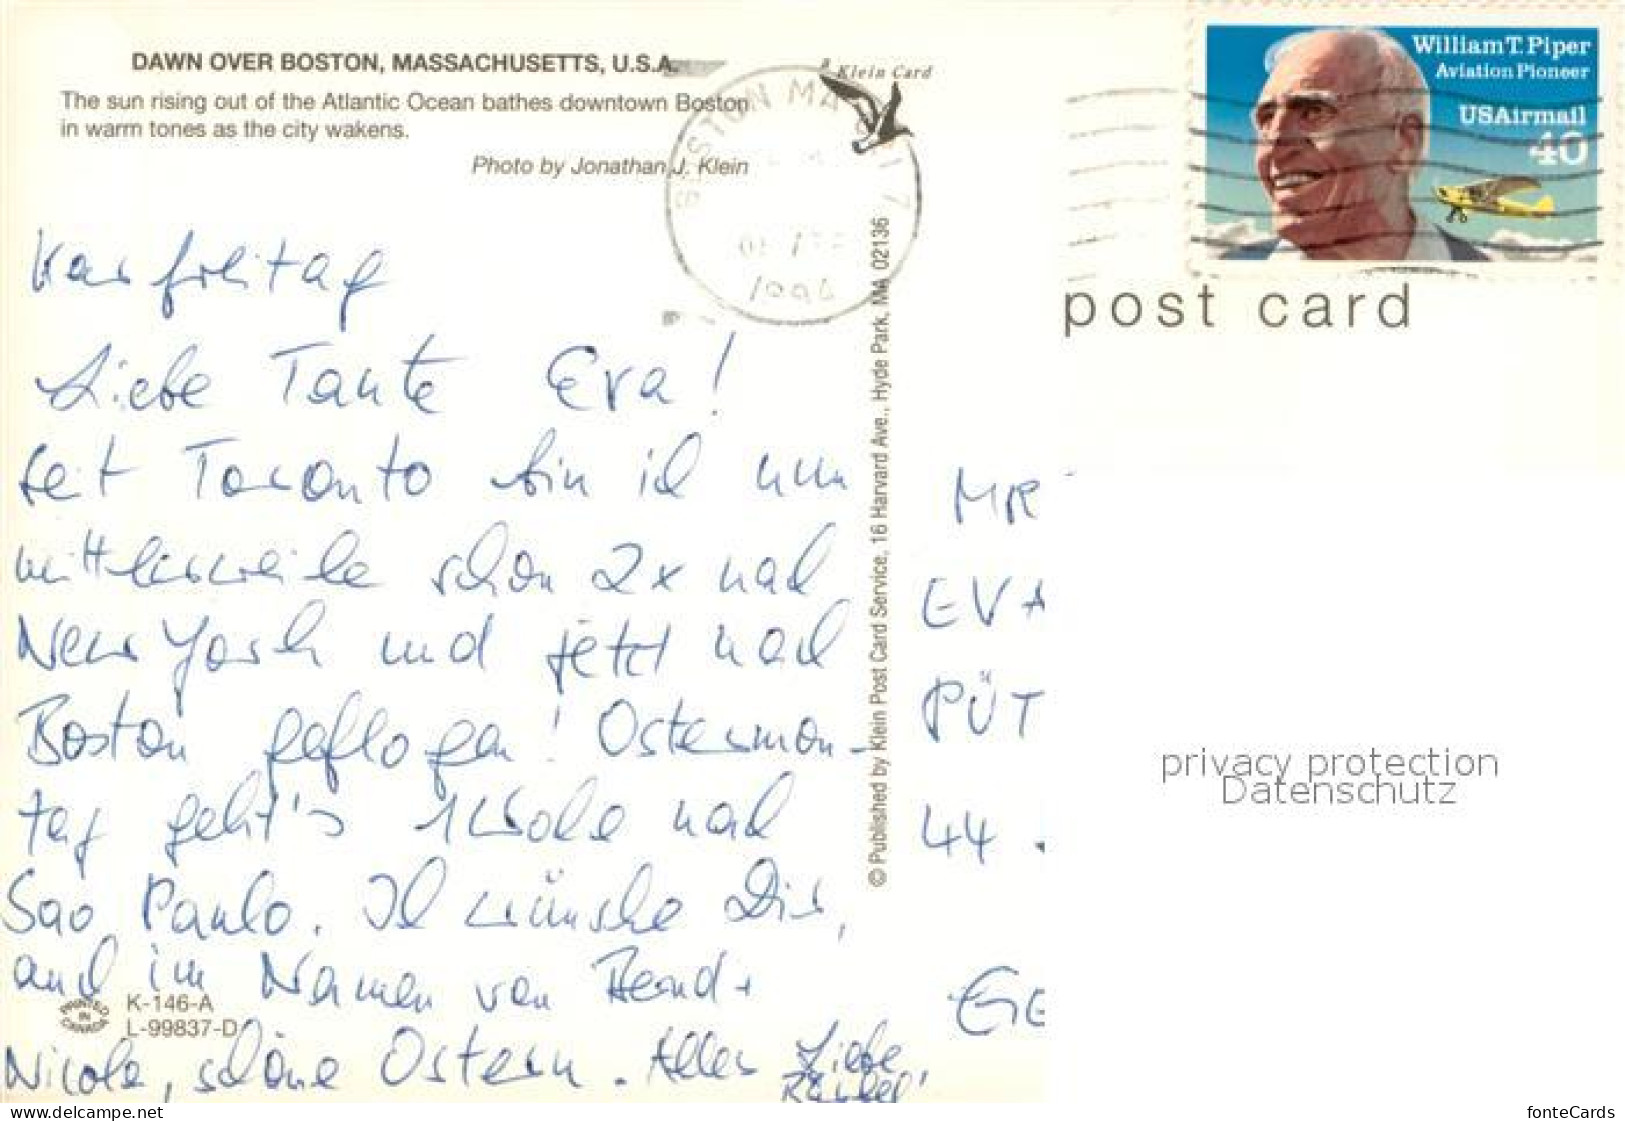 DAWN OVER BOSTON, MASSACHUSETTS, U.S.A.
The sun rising out of the Atlantic Ocean bathes downtown Boston
in warm tones as the city wakens.
Photo by Jonathan J. Klein
a Klein Card
BOSTON MA 017
1994
William T. Piper
Aviation Pioneer
USAirmail
40
post card
Karfreitag
Liebe Tante Eva!
seit Toronto bin ich nun
mittlerweile schon 2x nach
New York und jetzt nach
Boston geflogen! Ostermon-
tag geht's 1 Woche nach
Sao Paulo. Ich wünsche Dir,
auch im Namen von Bernd +
Nicole, schöne Ostern. Alles Liebe
© Published by Klein Post Card Service, 16 Harvard Ave., Hyde Park, MA 02136
PRINTED IN CANADA
K-146-A
L-99837-D
MR
EVA
PÜT
44
GE
privacy protection
Datenschutz
www.delcampe.net
fonteCards